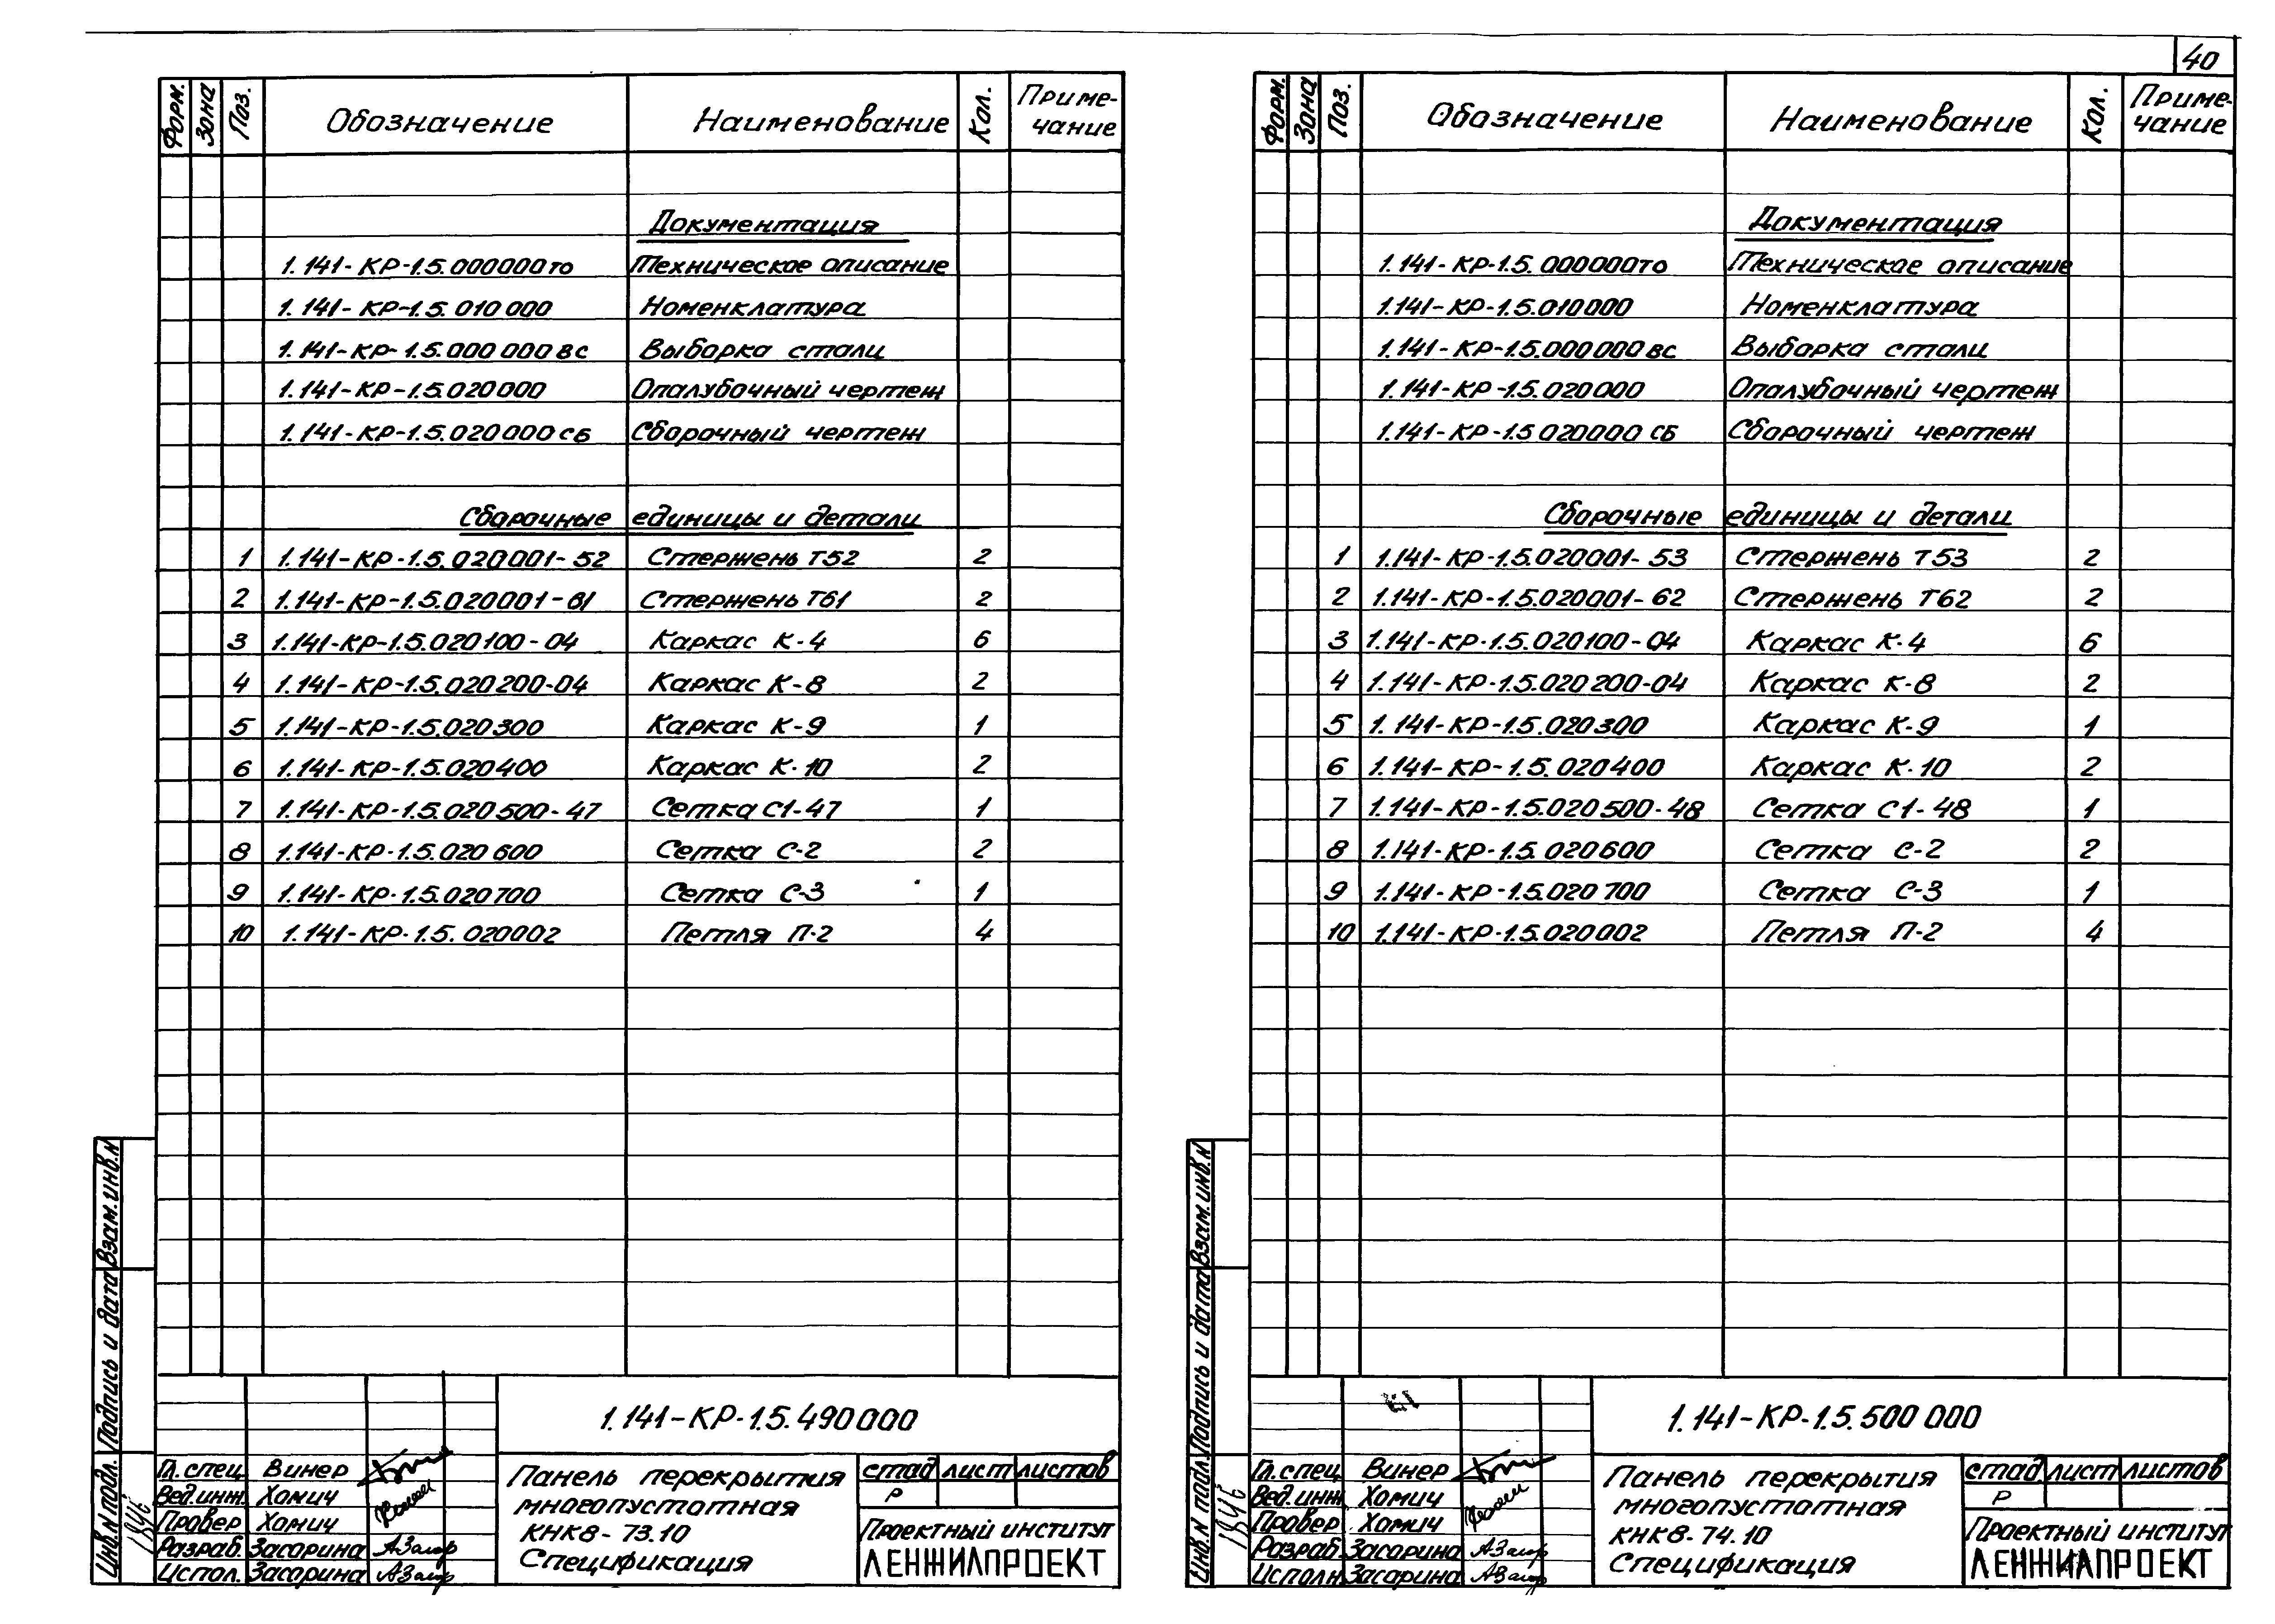 40
Форм. Зона Поз. Обозначение Наименование Кол. Приме-
чание
Документация
1.141-КР-1.5.000000то Техническое описание
1.141-КР-1.5.010 000 Номенклатура
1.141-КР-1.5.000 000 вс Выборка стали
1.141-КР-1.5.020000 Опалубочный чертеж
1.141-КР-1.5.020 000 сб Сборочный чертеж
Сборочные единицы и детали
1 1.141-КР-1.5.020001-52 Стержень Т52 2
2 1.141-КР-1.5.020001-61 Стержень Т61 2
3 1.141-КР-1.5.020100-04 Каркас К-4 6
4 1.141-КР-1.5.020200-04 Каркас К-8 2
5 1.141-КР-1.5.020300 Каркас К-9 1
6 1.141-КР-1.5.020400 Каркас К-10 2
7 1.141-КР-1.5.020500-47 Сетка С1-47 1
8 1.141-КР-1.5.020600 Сетка С-2 2
9 1.141-КР-1.5.020700 Сетка С-3 1
10 1.141-КР-1.5.020002 Петля П-2 4
Инв.N подл. Подпись и дата Взам.инв.N
1846
1.141-КР-1.5.490000
Гл.спец Винер
Вед.инж. Хомич
Провер Хомич
Разраб. Засорина
Испол. Засорина
Панель перекрытия
многопустотная
КНК8-73.10
Спецификация
стад лист листов
Р
Проектный институт
ЛЕНЖИЛПРОЕКТ
Форм. Зона Поз. Обозначение Наименование Кол. Приме-
чание
Документация
1.141-КР-1.5.000000то Техническое описание
1.141-КР-1.5.010000 Номенклатура
1.141-КР-1.5.000000 вс Выборка стали
1.141-КР-1.5.020000 Опалубочный чертеж
1.141-КР-1.5 020000 СБ Сборочный чертеж
Сборочные единицы и детали
1 1.141-КР-1.5.020001-53 Стержень Т53 2
2 1.141-КР-1.5.020001-62 Стержень Т62 2
3 1.141-КР-1.5.020100-04 Каркас К-4 6
4 1.141-КР-1.5.020200-04 Каркас К-8 2
5 1.141-КР-1.5.020300 Каркас К-9 1
6 1.141-КР-1.5.020400 Каркас К-10 2
7 1.141-КР-1.5.020500-48 Сетка С1-48 1
8 1.141-КР-1.5.020600 Сетка С-2 2
9 1.141-КР-1.5.020700 Сетка С-3 1
10 1.141-КР-1.5.020002 Петля П-2 4
Инв.N подл. Подпись и дата Взам.инв.N
1846
1.141-КР-1.5.500 000
Гл.спец Винер
Вед.инж Хомич
Провер Хомич
Разраб. Засорина
Исполн. Засорина
Панель перекрытия
многопустотная
КНК8-74.10
Спецификация
стад лист листов
Р
Проектный институт
ЛЕНЖИЛПРОЕКТ